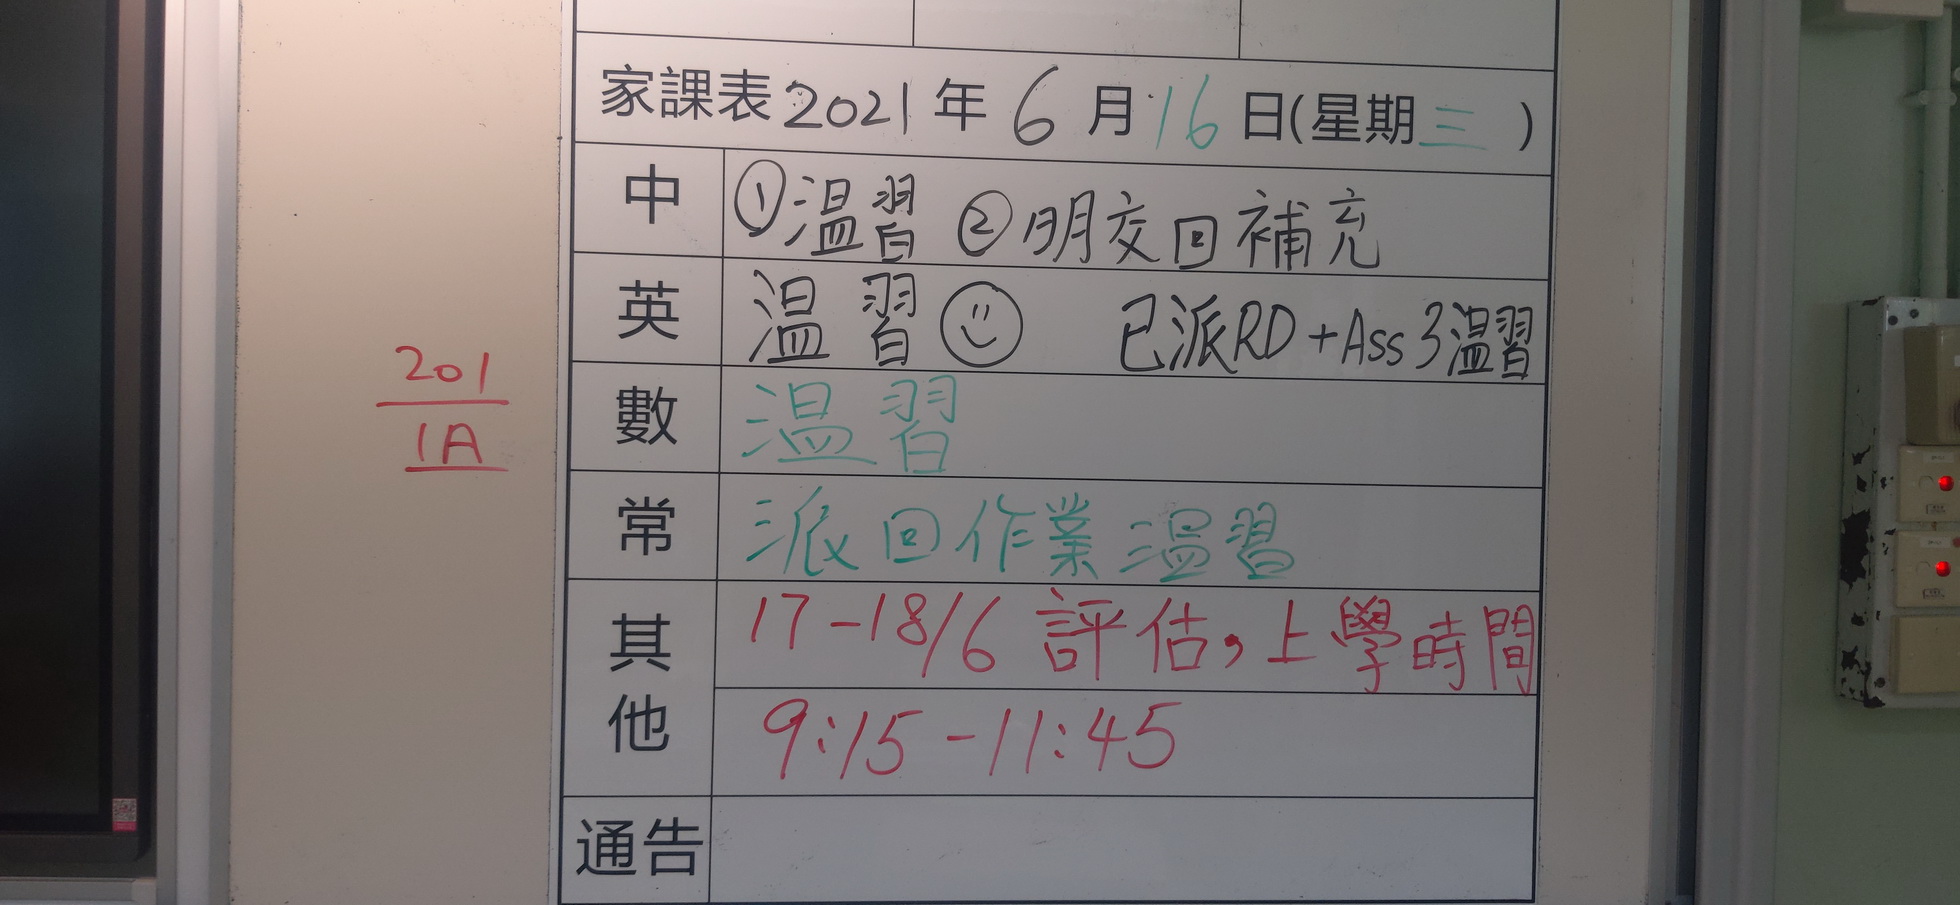 家課表2021年6月16日(星期三)
中 ①溫習 ②明交回補充
英 溫習 已派RD+Ass 3溫習
數 溫習
常 派回作業溫習
其他 17-18/6 評估,上學時間
9:15-11:45
通告
201
1A